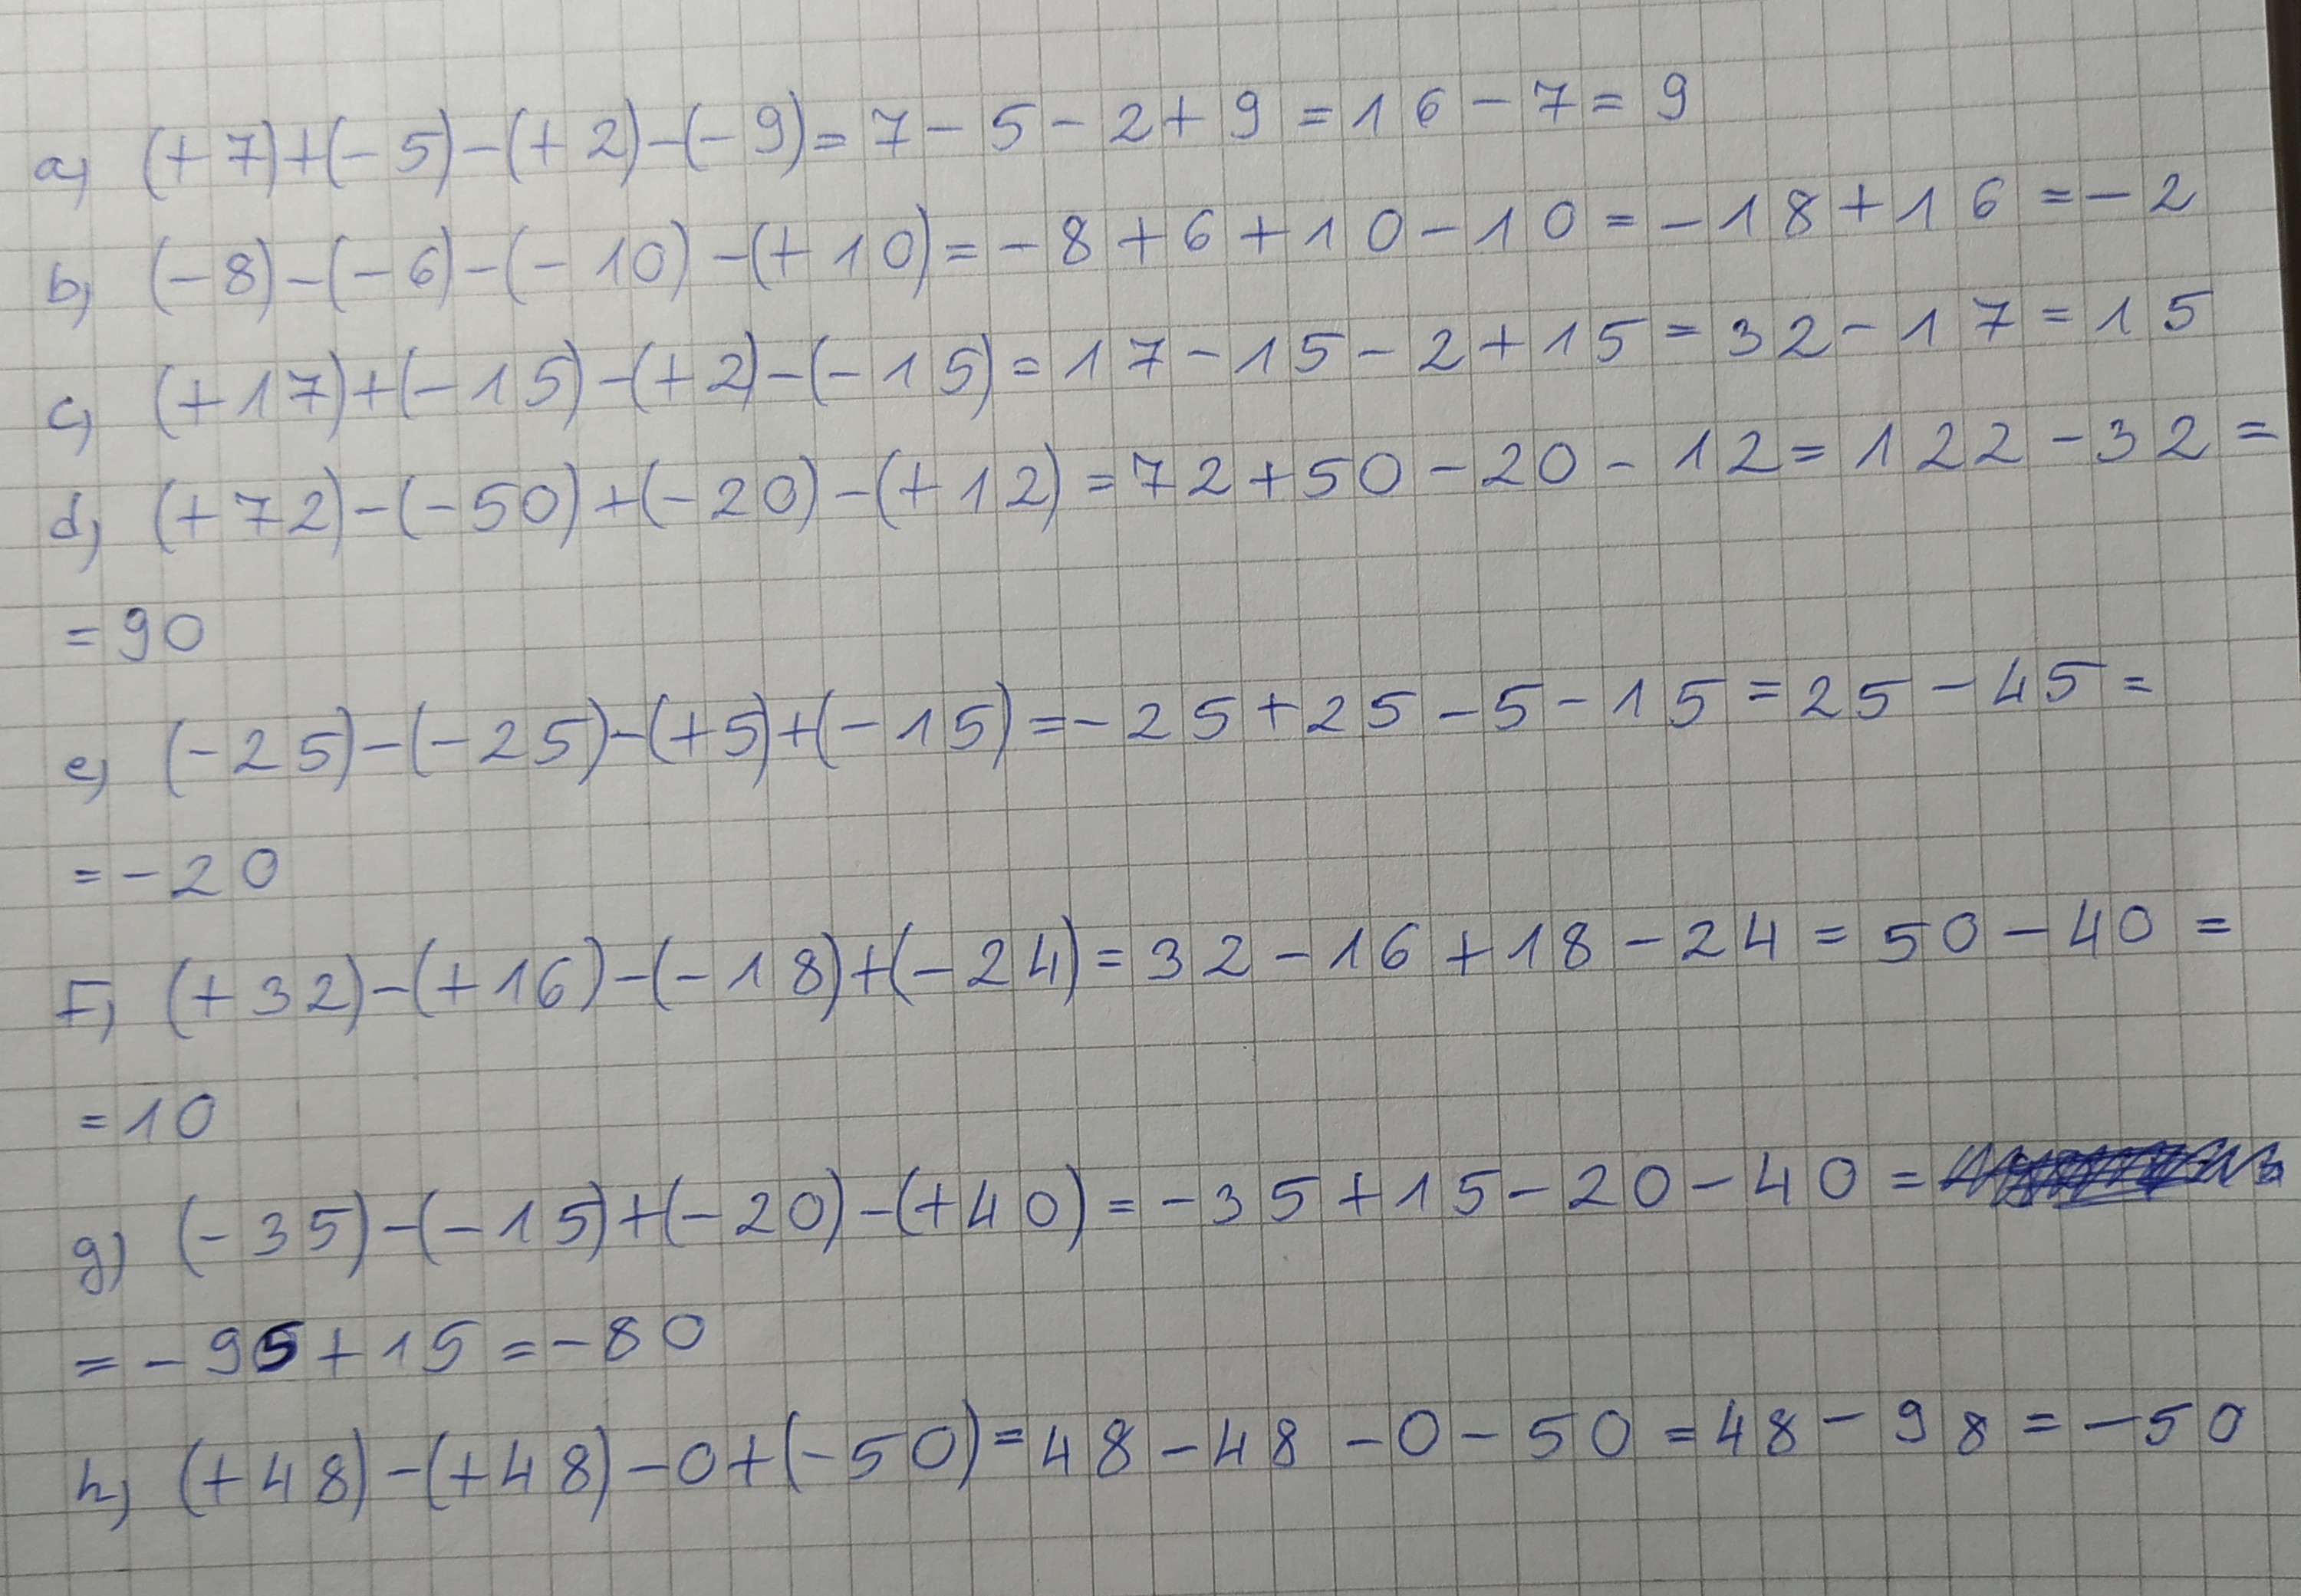 a) (+7)+(-5)-(+2)-(-9)=7-5-2+9=16-7=9
b) (-8)-(-6)-(-10)-(+10)=-8+6+10-10=-18+16=-2
c) (+17)+(-15)-(+2)-(-15)=17-15-2+15=32-17=15
d) (+72)-(-50)+(-20)-(+12)=72+50-20-12=122-32=
=90
e) (-25)-(-25)-(+5)+(-15)=-25+25-5-15=25-45=
=-20
F) (+32)-(+16)-(-18)+(-24)=32-16+18-24=50-40=
=10
g) (-35)-(-15)+(-20)-(+40)=-35+15-20-40=
=-95+15=-80
h) (+48)-(+48)-0+(-50)=48-48-0-50=48-98=-50